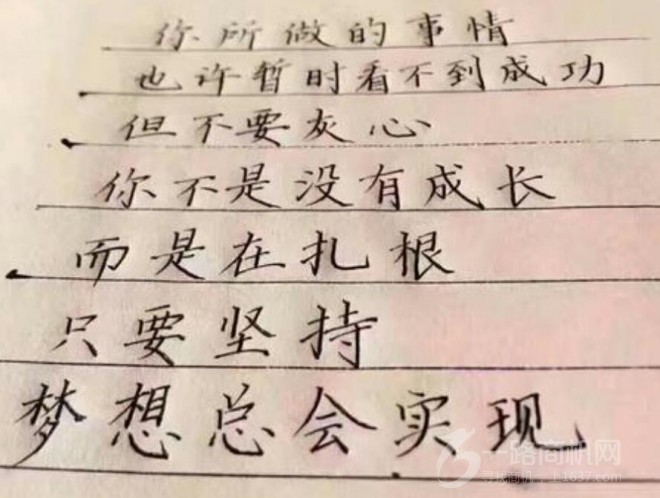 你所做的事情
也许暂时看不到成功
但不要灰心
你不是没有成长
而是在扎根
只要坚持
梦想总会实现
一路商机网